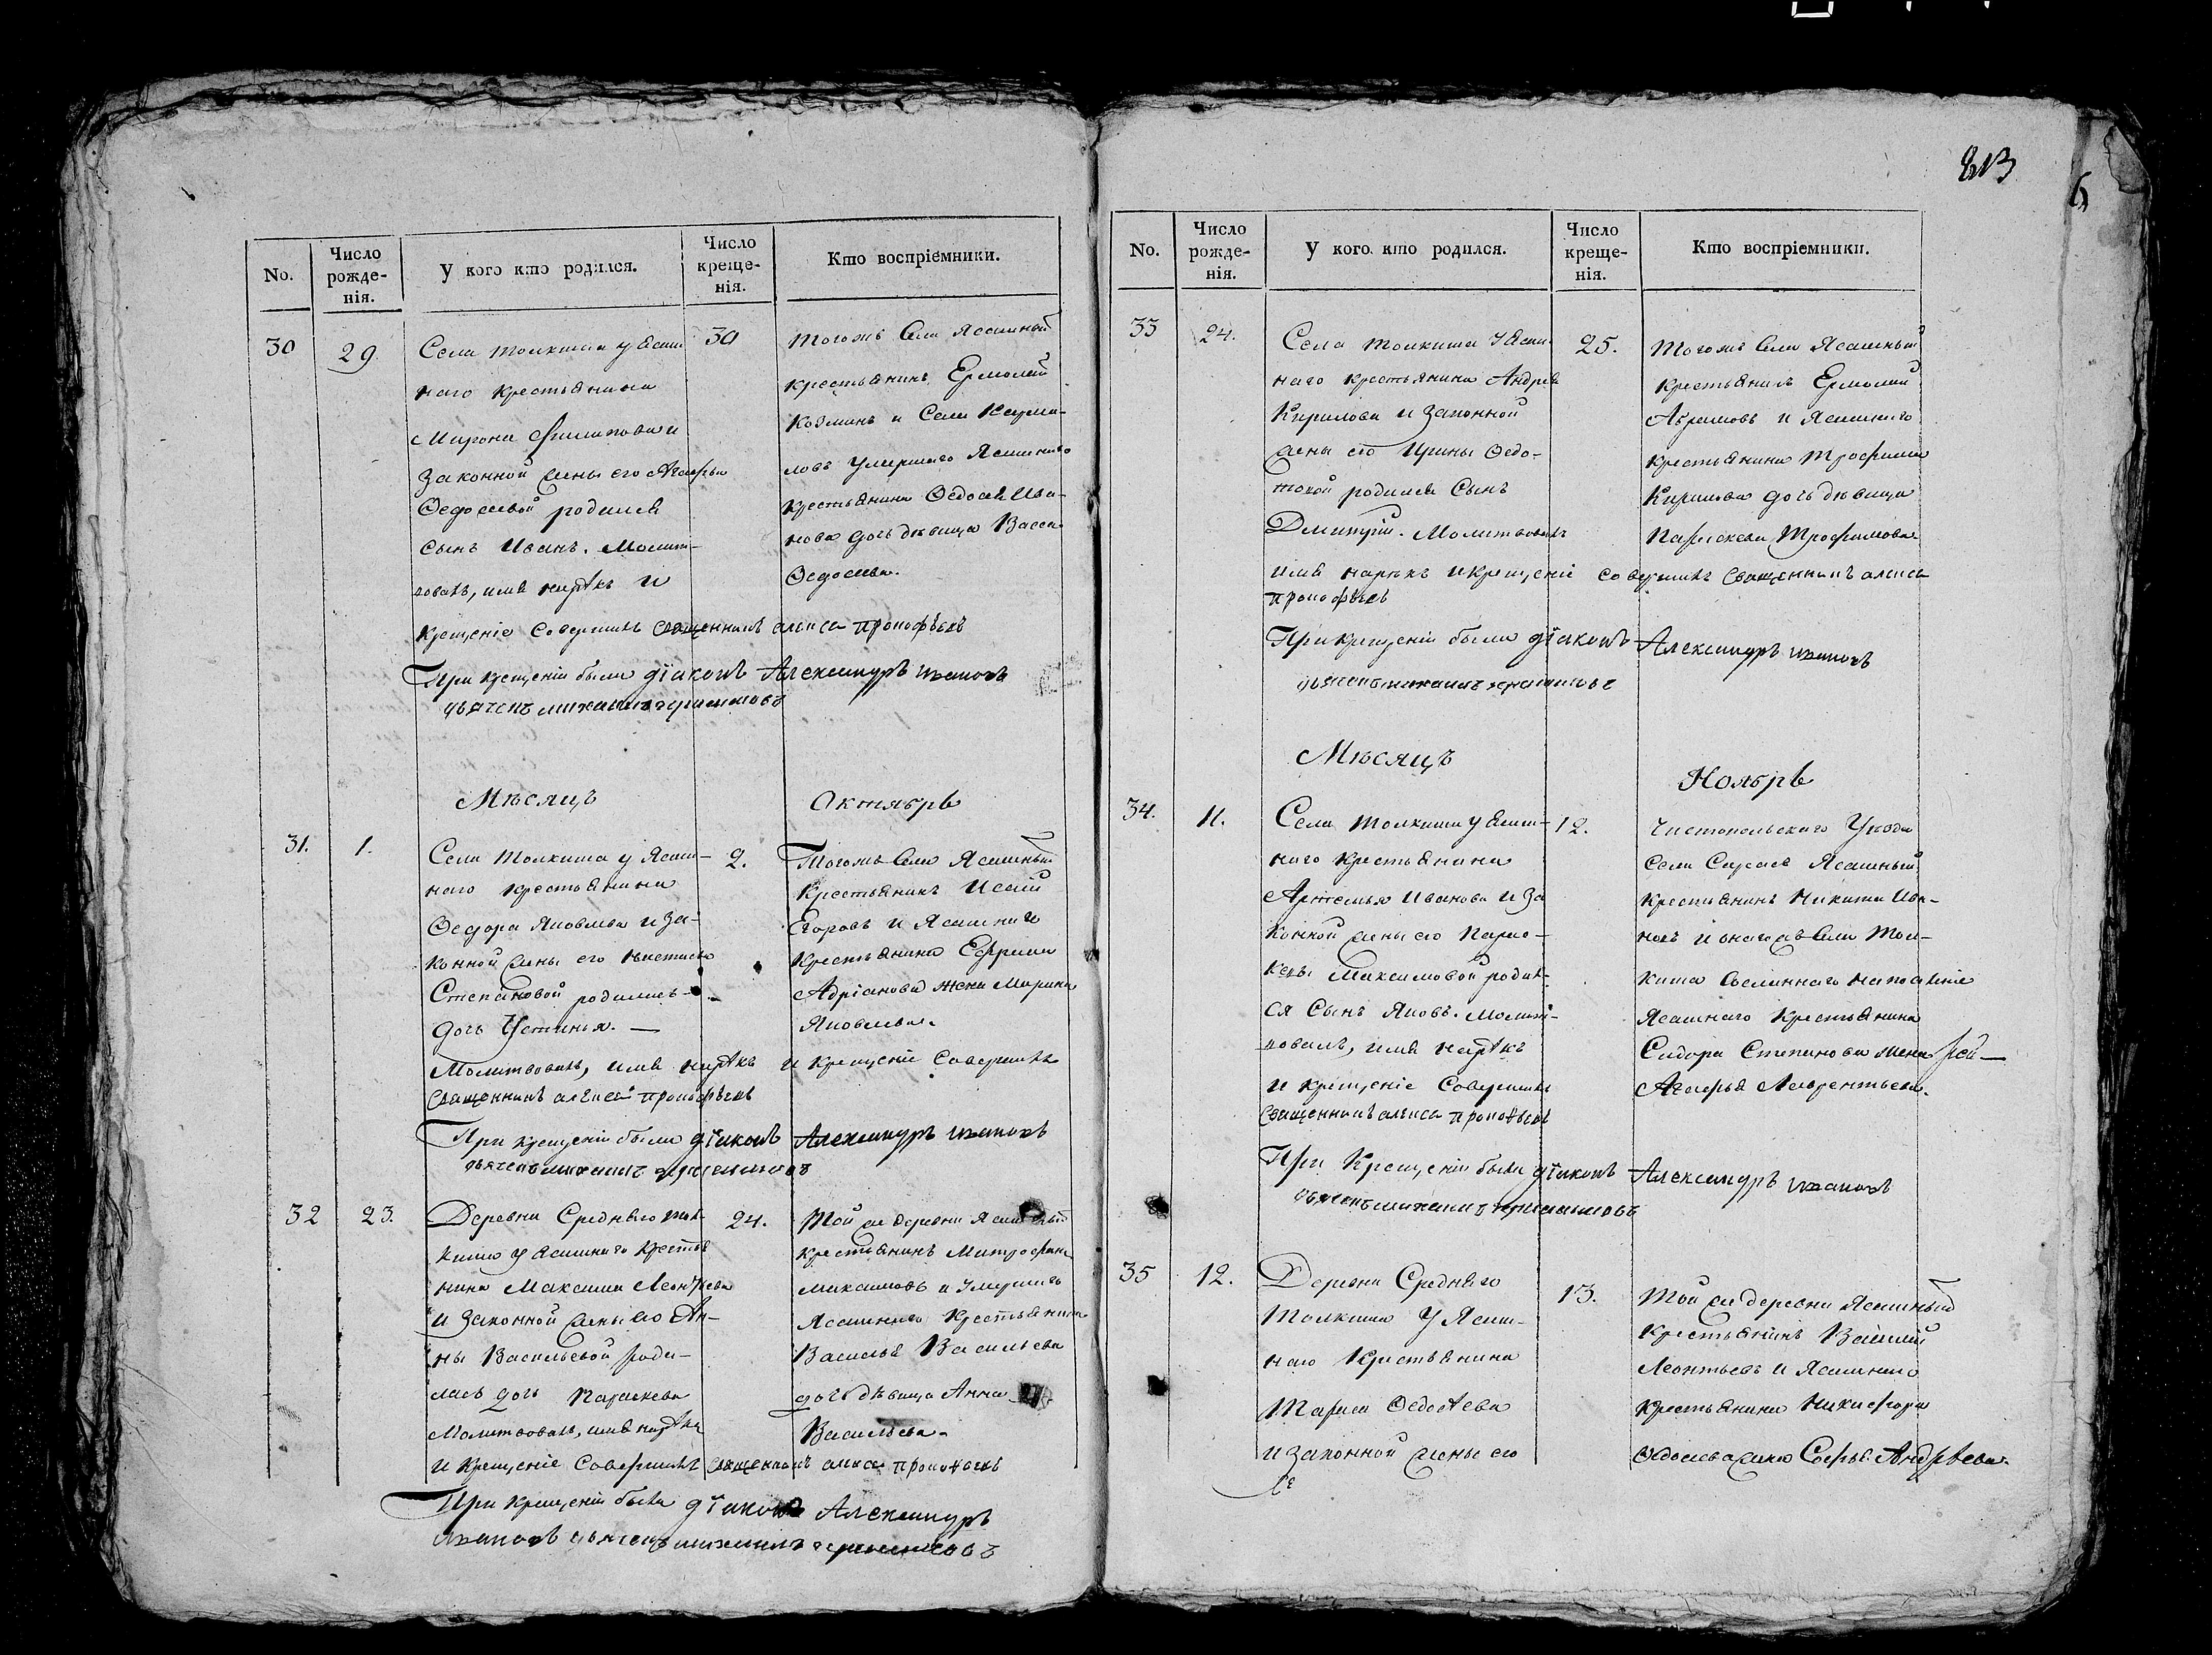 813
6
No.
Число рожде-нія.
У кого кто родился.
Число креще-нія.
Кто воспріемники.
30
29
30
Села толкиша у Ясаш-
наго крестьянина
Мирона Филипова и
законной жены его Агафьи
Федосеевой родился
сынъ Иванъ. Молит-
вовалъ, имя нарѣкъ и
крещеніе совершилъ священникъ алексей прокофьевъ
Тогожъ села Ясашный
крестьянинъ Ермолай
Козминъ и села
умершаго Ясашнаго
крестьянина Федосея Ива-
нова дочь дѣвица Васса
Федосеева.
При крещеніи были діаконъ Александръ ивановъ
дьячекъ михаилъ
Мѣсяцъ Октябрь
31.
1.
2.
Села Толкиша у Ясаш-
наго крестьянина
Федора Яковлева и за-
конной жены его
Степановой родилась
дочь Устинья.
Молитвовалъ, имя нарѣкъ и крещеніе совершилъ
священникъ алексей прокофьевъ
Тогожъ села Ясашный
крестьянинъ Исай
Егоровъ и Ясашнаго
крестьянина Ефрема
Адріанова жена Марина
Яковлева.
При крещеніи были діаконъ Александръ ивановъ
дьячекъ михаилъ
32
23.
24.
Деревни Средняго тол-
киша у Ясашнаго крестья
нина Максима Леонтьева
и законной жены его Ан-
ны Васильевой роди-
лась дочь Параскева
Молитвовалъ, имя нарѣкъ
и крещеніе совершилъ священникъ алексей прокофьевъ
Той же деревни Ясашный
крестьянинъ Митрофанъ
Максимовъ и умершаго
Ясашнаго крестьянина
Василья Васильева
дочь дѣвица Анна
Васильева.
При крещеніи были діаконъ Александръ
ивановъ дьячекъ михаилъ
No.
Число рожде-нія.
У кого кто родился.
Число креще-нія.
Кто воспріемники.
33
24.
25.
Села толкиша у Ясаш-
наго крестьянина Андрея
Кирилова и законной
жены его Ирины Федо-
товой родился сынъ
Дмитрій. Молитвовалъ
имя нарѣкъ и крещеніе совершилъ священникъ алексей
прокофьевъ
Тогожъ села Ясашный
крестьянинъ Ермолай
Абрамовъ и Ясашнаго
крестьянина Трофима
Кирилова дочь дѣвица
Параскева Трофимова
При крещеніи были діаконъ Александръ ивановъ
дьячекъ михаилъ
Мѣсяцъ Ноябрь
34.
11.
12.
Села толкиша у Ясаш-
наго крестьянина
Артемья Иванова и за
конной жены его Парас-
кевы Максимовой родил-
ся сынъ Яковъ. Молит-
вовалъ, имя нарѣкъ
и крещеніе совершилъ
священникъ алексей прокофьевъ
Чистопольскаго Уезда
села Ясашный
крестьянинъ Никита Ива-
новъ и онагожъ села Тол-
киша
Ясашнаго крестьянина
Сидора Степанова жена
Агафья Лаврентьева.
При крещеніи были діаконъ Александръ ивановъ
дьячекъ михаилъ
35
12.
13.
Деревни Средняго
Толкиша у Ясаш-
наго крестьянина
Федосеева
и законной жены его
Той же деревни Ясашный
крестьянинъ Василій
Леонтьевъ и Ясашнаго
крестьянина Никифора
Федосеева жена Софья Андреева.